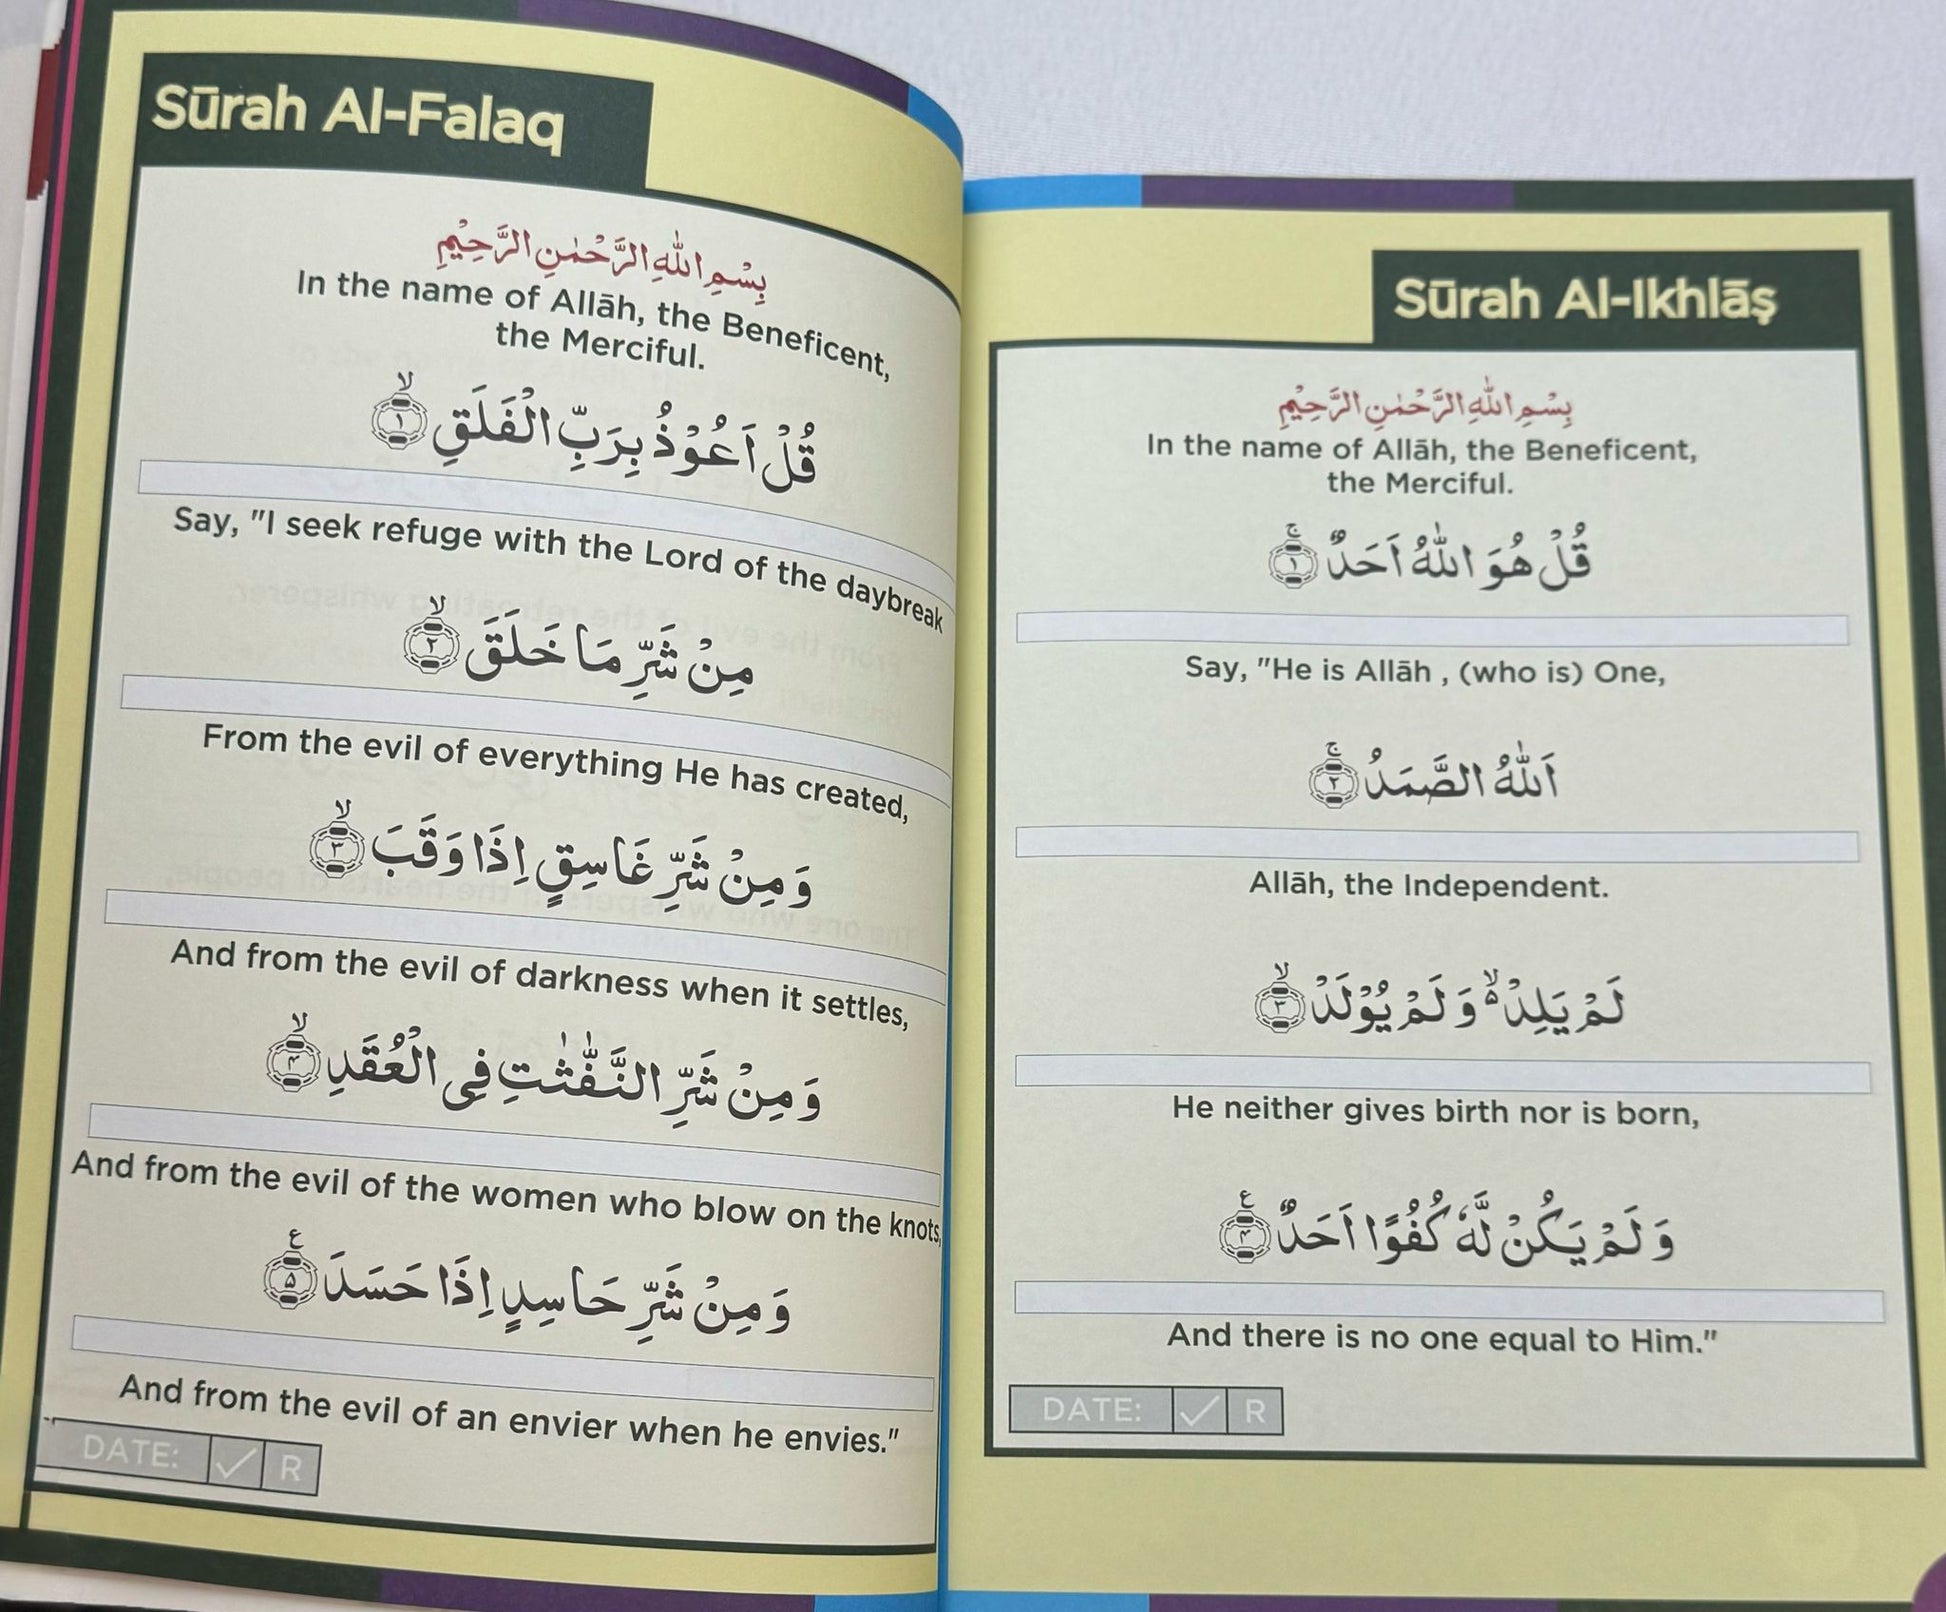 Sūrah Al-Falaq
بِسْمِ اللّٰهِ الرَّحْمٰنِ الرَّحِيْمِ
In the name of Allāh, the Beneficent,
the Merciful.
قُلْ اَعُوْذُ بِرَبِّ الْفَلَقِ ۙ ١
Say, "I seek refuge with the Lord of the daybreak
مِنْ شَرِّ مَا خَلَقَ ۙ ٢
From the evil of everything He has created,
وَ مِنْ شَرِّ غَاسِقٍ اِذَا وَقَبَ ۙ ٣
And from the evil of darkness when it settles,
وَ مِنْ شَرِّ النَّفّٰثٰتِ فِى الْعُقَدِ ۙ ۴
And from the evil of the women who blow on the knots,
وَ مِنْ شَرِّ حَاسِدٍ اِذَا حَسَدَ ع ۵
And from the evil of an envier when he envies."
DATE: ✓ R
Sūrah Al-Ikhlāṣ
بِسْمِ اللّٰهِ الرَّحْمٰنِ الرَّحِيْمِ
In the name of Allāh, the Beneficent,
the Merciful.
قُلْ هُوَ اللّٰهُ اَحَدٌ ۚ ١
Say, "He is Allāh , (who is) One,
اَللّٰهُ الصَّمَدُ ۚ ٢
Allāh, the Independent.
لَمْ يَلِدْ ۙ۬ وَ لَمْ يُوْلَدْ ۙ ٣
He neither gives birth nor is born,
وَ لَمْ يَكُنْ لَّهٗ كُفُوًا اَحَدٌ ع ۴
And there is no one equal to Him."
DATE: ✓ R